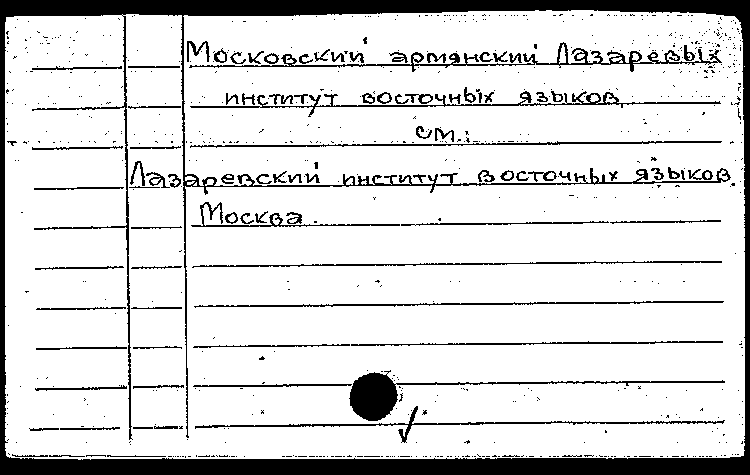 Московский армянский Лазаревых
институт восточных языков
см.:
Лазаревский институт восточных языков.
Москва.